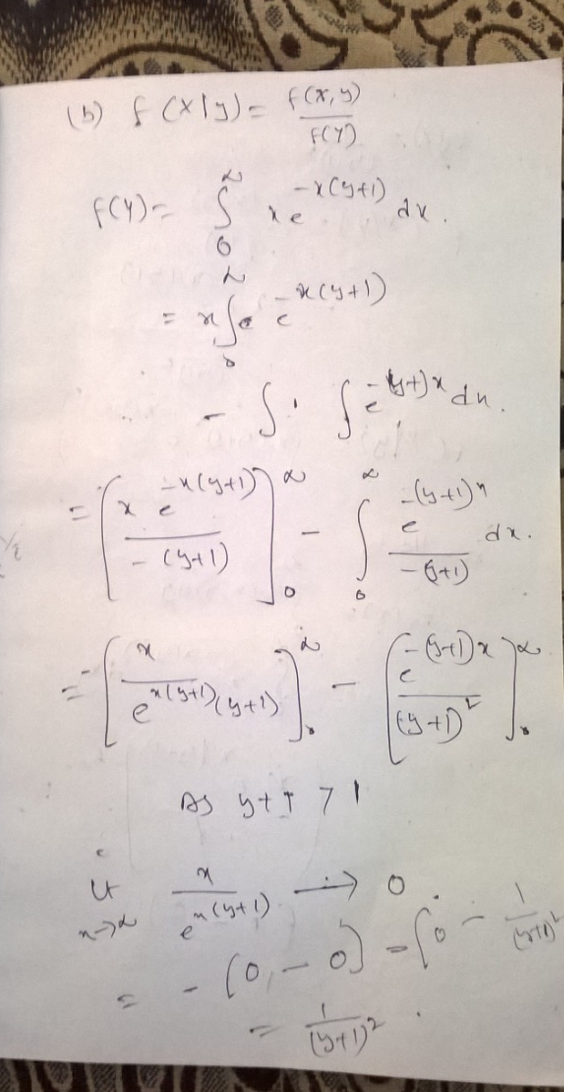 (b) f(x|y) = f(x,y) / f(y)
f(y) = ∫₀^∞ x e^{-x(y+1)} dx.
= x ∫₀^∞ e^{-x(y+1)}
- ∫ 1 · ∫ e^{-(y+1)x} dx.
= [ x e^{-x(y+1)} / -(y+1) ]₀^∞ - ∫₀^∞ e^{-(y+1)x} / -(y+1) dx.
= -[ x / e^{x(y+1)} (y+1) ]₀^∞ - [ e^{-(y+1)x} / (y+1)² ]₀^∞
As y+1 > 1
Lt x→∞ x / e^{x(y+1)} → 0.
= -[0 - 0] - [0 - 1/(y+1)²
= 1/(y+1)².